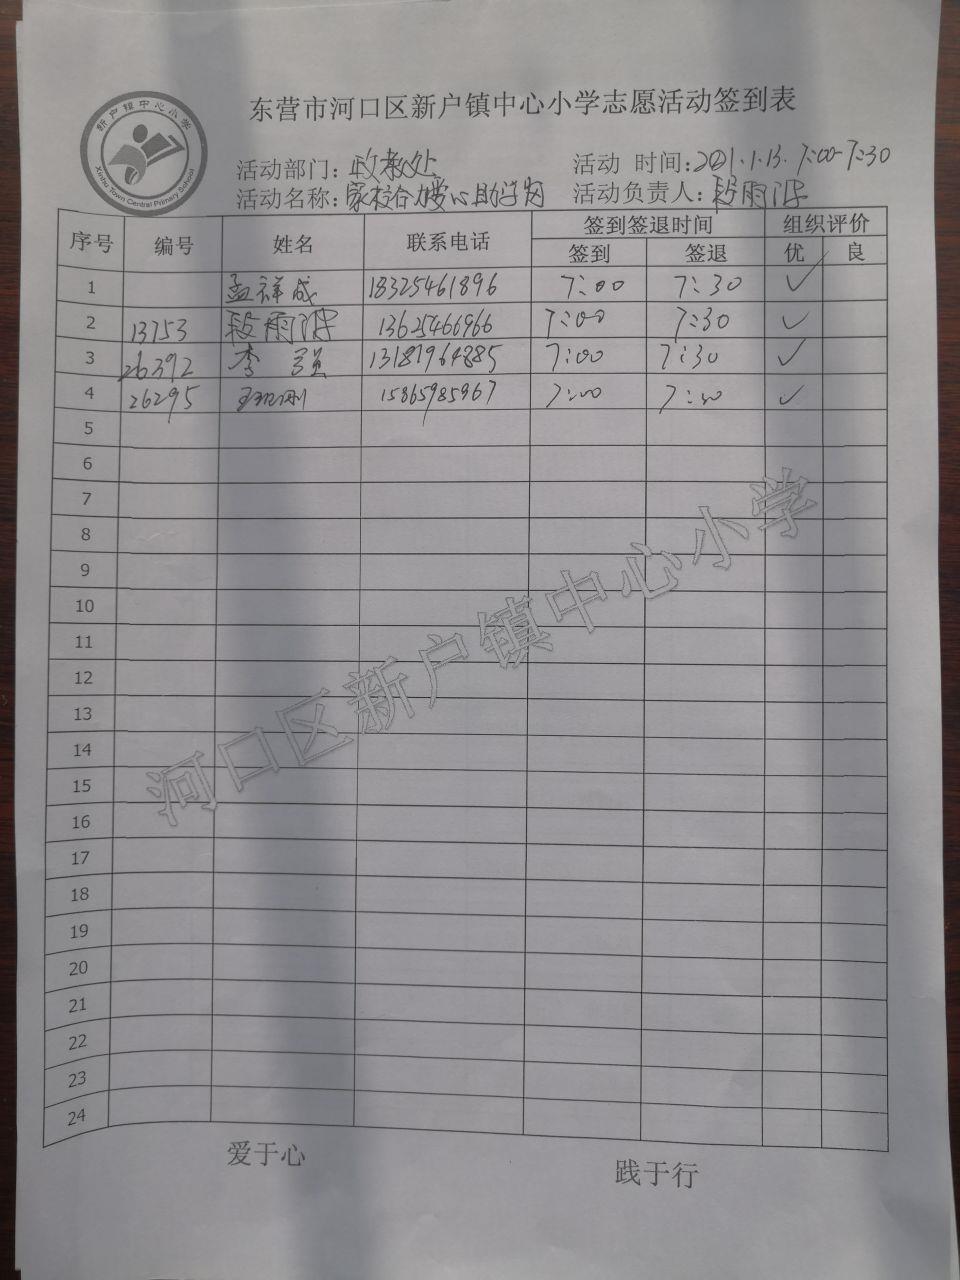 东营市河口区新户镇中心小学志愿活动签到表
新户镇中心小学
Xinhu Town Central Primary School
活动部门：政教处 活动 时间：2021.1.13. 7:00-7:30
活动名称：家校合力爱心助学岗 活动负责人：段雨
序号 编号 姓名 联系电话 签到签退时间 组织评价
签到 签退 优 良
1 孟祥成 18325461896 7:00 7:30 ✓
2 13753 段雨 13625466966 7:00 7:30 ✓
3 26392 李强 13181964885 7:00 7:30 ✓
4 26295 王刚 15865985967 7:00 7:30 ✓
5
6
7
8
9
10
11
12
13
14
15
16
17
18
19
20
21
22
23
24
河口区新户镇中心小学
爱于心 践于行